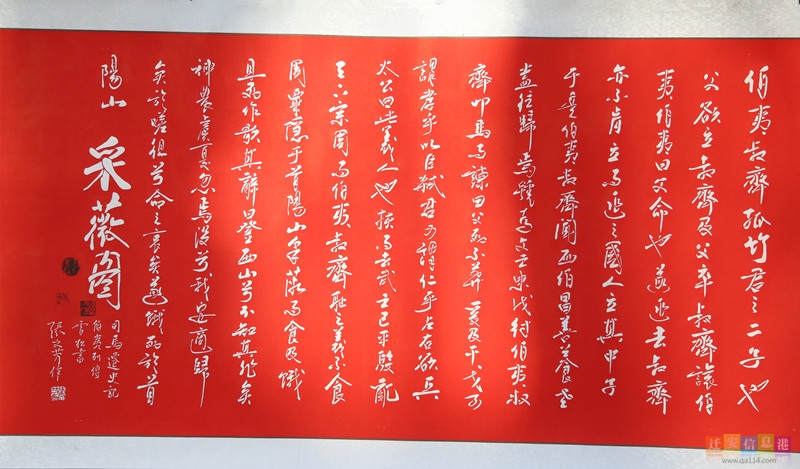 伯夷叔齊孤竹君之二子也
父欲立叔齊及父卒叔齊讓伯
夷伯夷曰父命也遂逃去叔齊
亦不肯立而逃之國人立其中子
于是伯夷叔齊聞西伯昌善養老
盍往歸焉號為文王東伐紂伯夷叔
齊叩馬而諫曰父死不葬爰及干戈可
謂孝乎以臣弒君可謂仁乎左右欲兵
太公曰此義人也扶而去武王已平殷亂
天下宗周而伯夷叔齊恥之義不食
周粟隱于首陽山采薇而食及餓
且死作歌其辭曰登西山兮不知其非矣
神農虞夏忽焉没兮我安適歸
矣於嗟徂兮命之衰矣遂餓死於首
陽山
采薇圖
司馬遷史記
伯夷列傳
書
張
作
迁安信息港
www.qa114.com